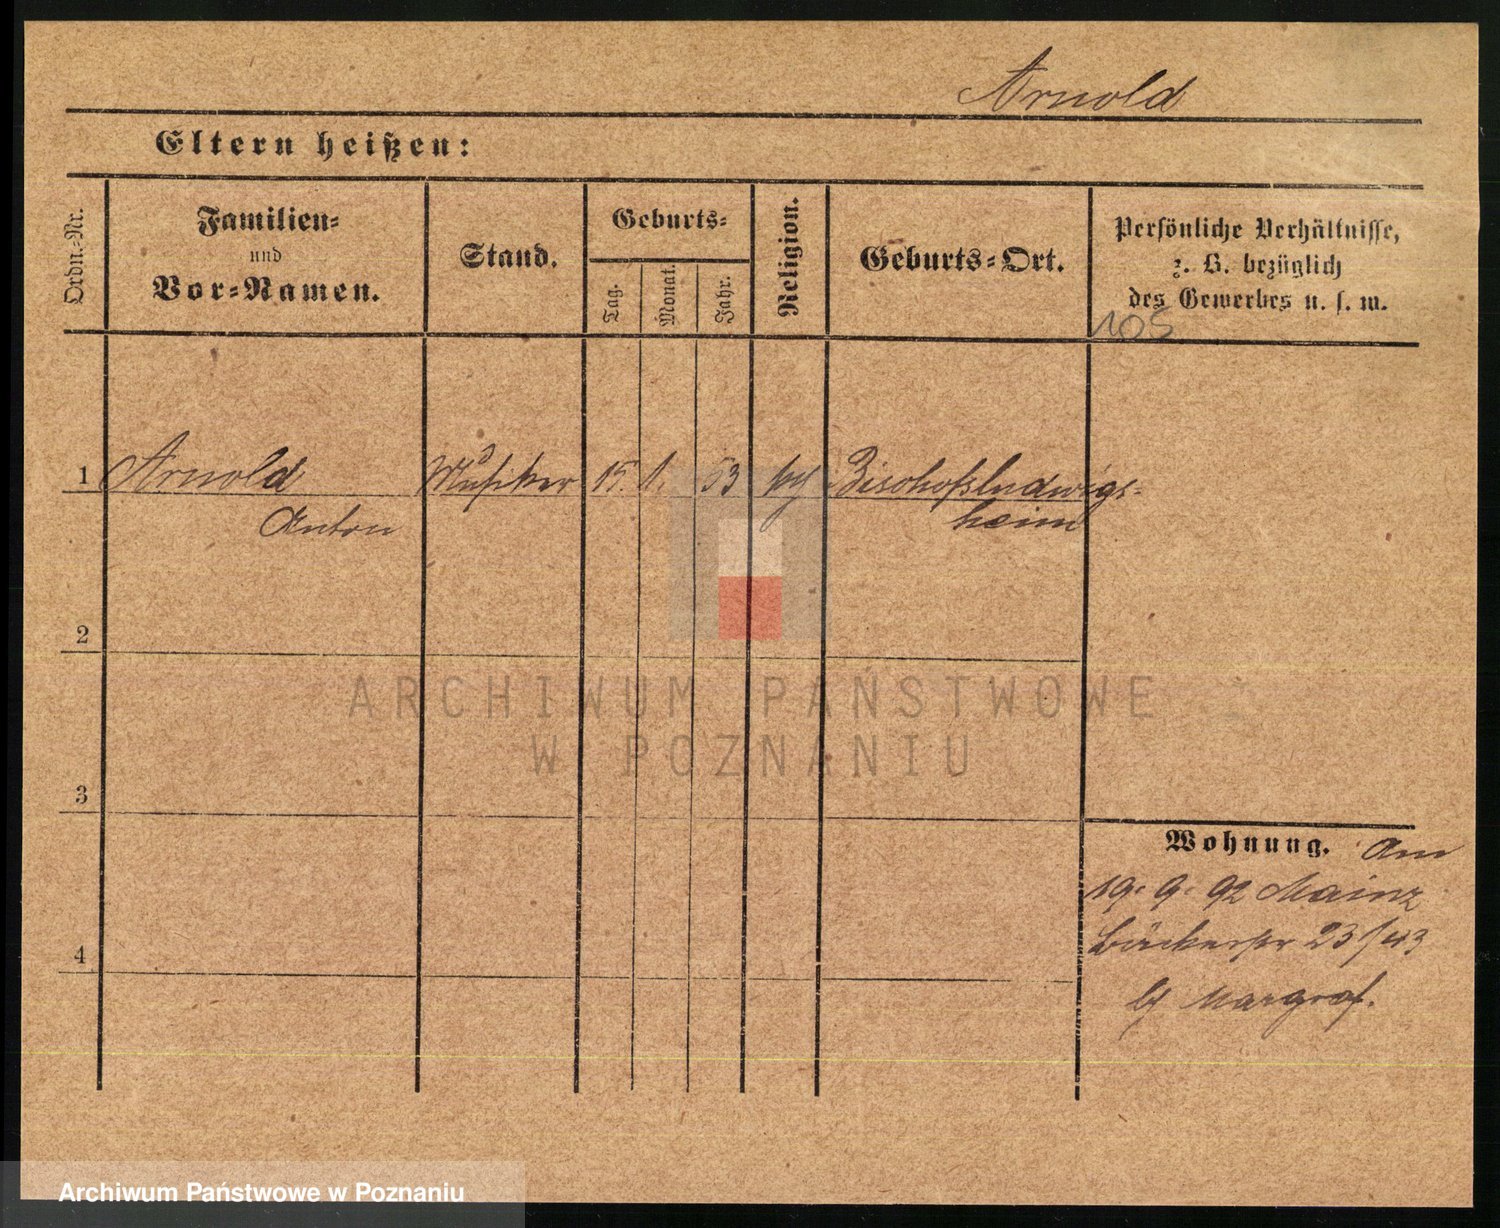 Arnold
Eltern heißen:
Ordn.-Nr.
Familien-
und
Vor-Namen.
Stand.
Geburts-
Tag.
Monat.
Jahr.
Religion.
Geburts-Ort.
Persönliche Verhältnisse,
z. B. bezüglich
des Gewerbes u. s. w.
105
1 Arnold Musiker 15. 1. 53 Bischofsludwigs-
Anton heim
2
ARCHIWUM PAŃSTWOWE
W POZNANIU
3
Wohnung. Am
19. 9. 92 Mainz
4
23/43
bei Margraf.
Archiwum Państwowe w Poznaniu